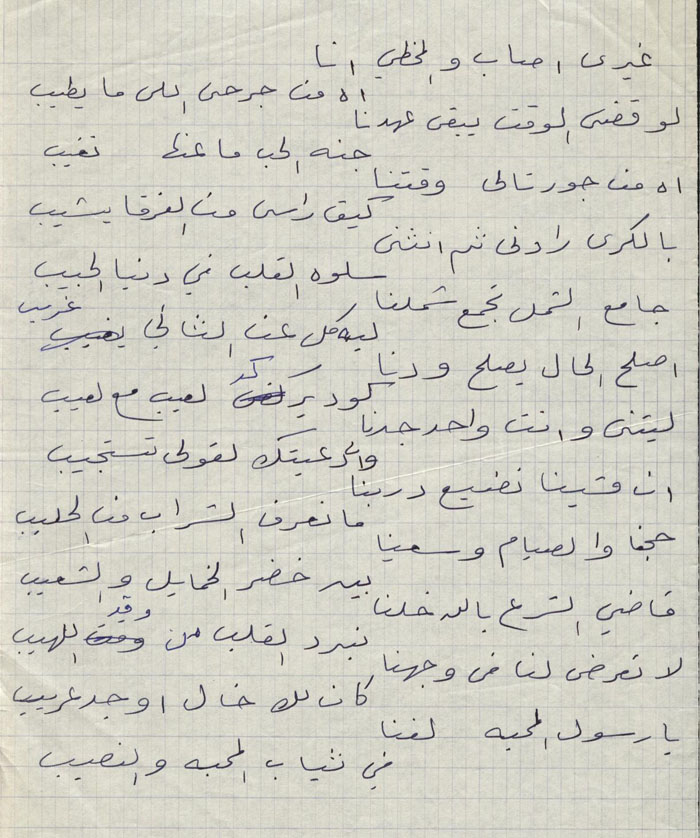 غيرى اصاب والمخطي انا
اه من جرحى اللى ما يطيب
لو قضى الوقت يبقى عهدنا
جنه الحب ما عنها نغيب
اه من جور تالى وقتنا
كيف راسى من الفرقا يشيب
بالكرى راودنى ثم انثنى
سلوه القلب في دنيا الحبيب
جامع الشمل تجمع شملنا
ليه كل عن الثاني غريب
اصلح الحال يصلح ودنا
كود يركد لعيب مع لعيب
ليتنى وانت واحد جدنا
والى دعيتك لقولى تستجيب
ان مشينا نضيع دربنا
ما نعرف الشراب من الحليب
حجنا والصيام وسعينا
بين خضر الخمايل والشعيب
قاضي الشرع بالله خلنا
نبرد القلب من وقد اللهيب
لا تعرض لنا فى وجهنا
كان لك خال اوجد عريب
يا رسول المحبه لفنا
في ثياب المحبه والنصيب